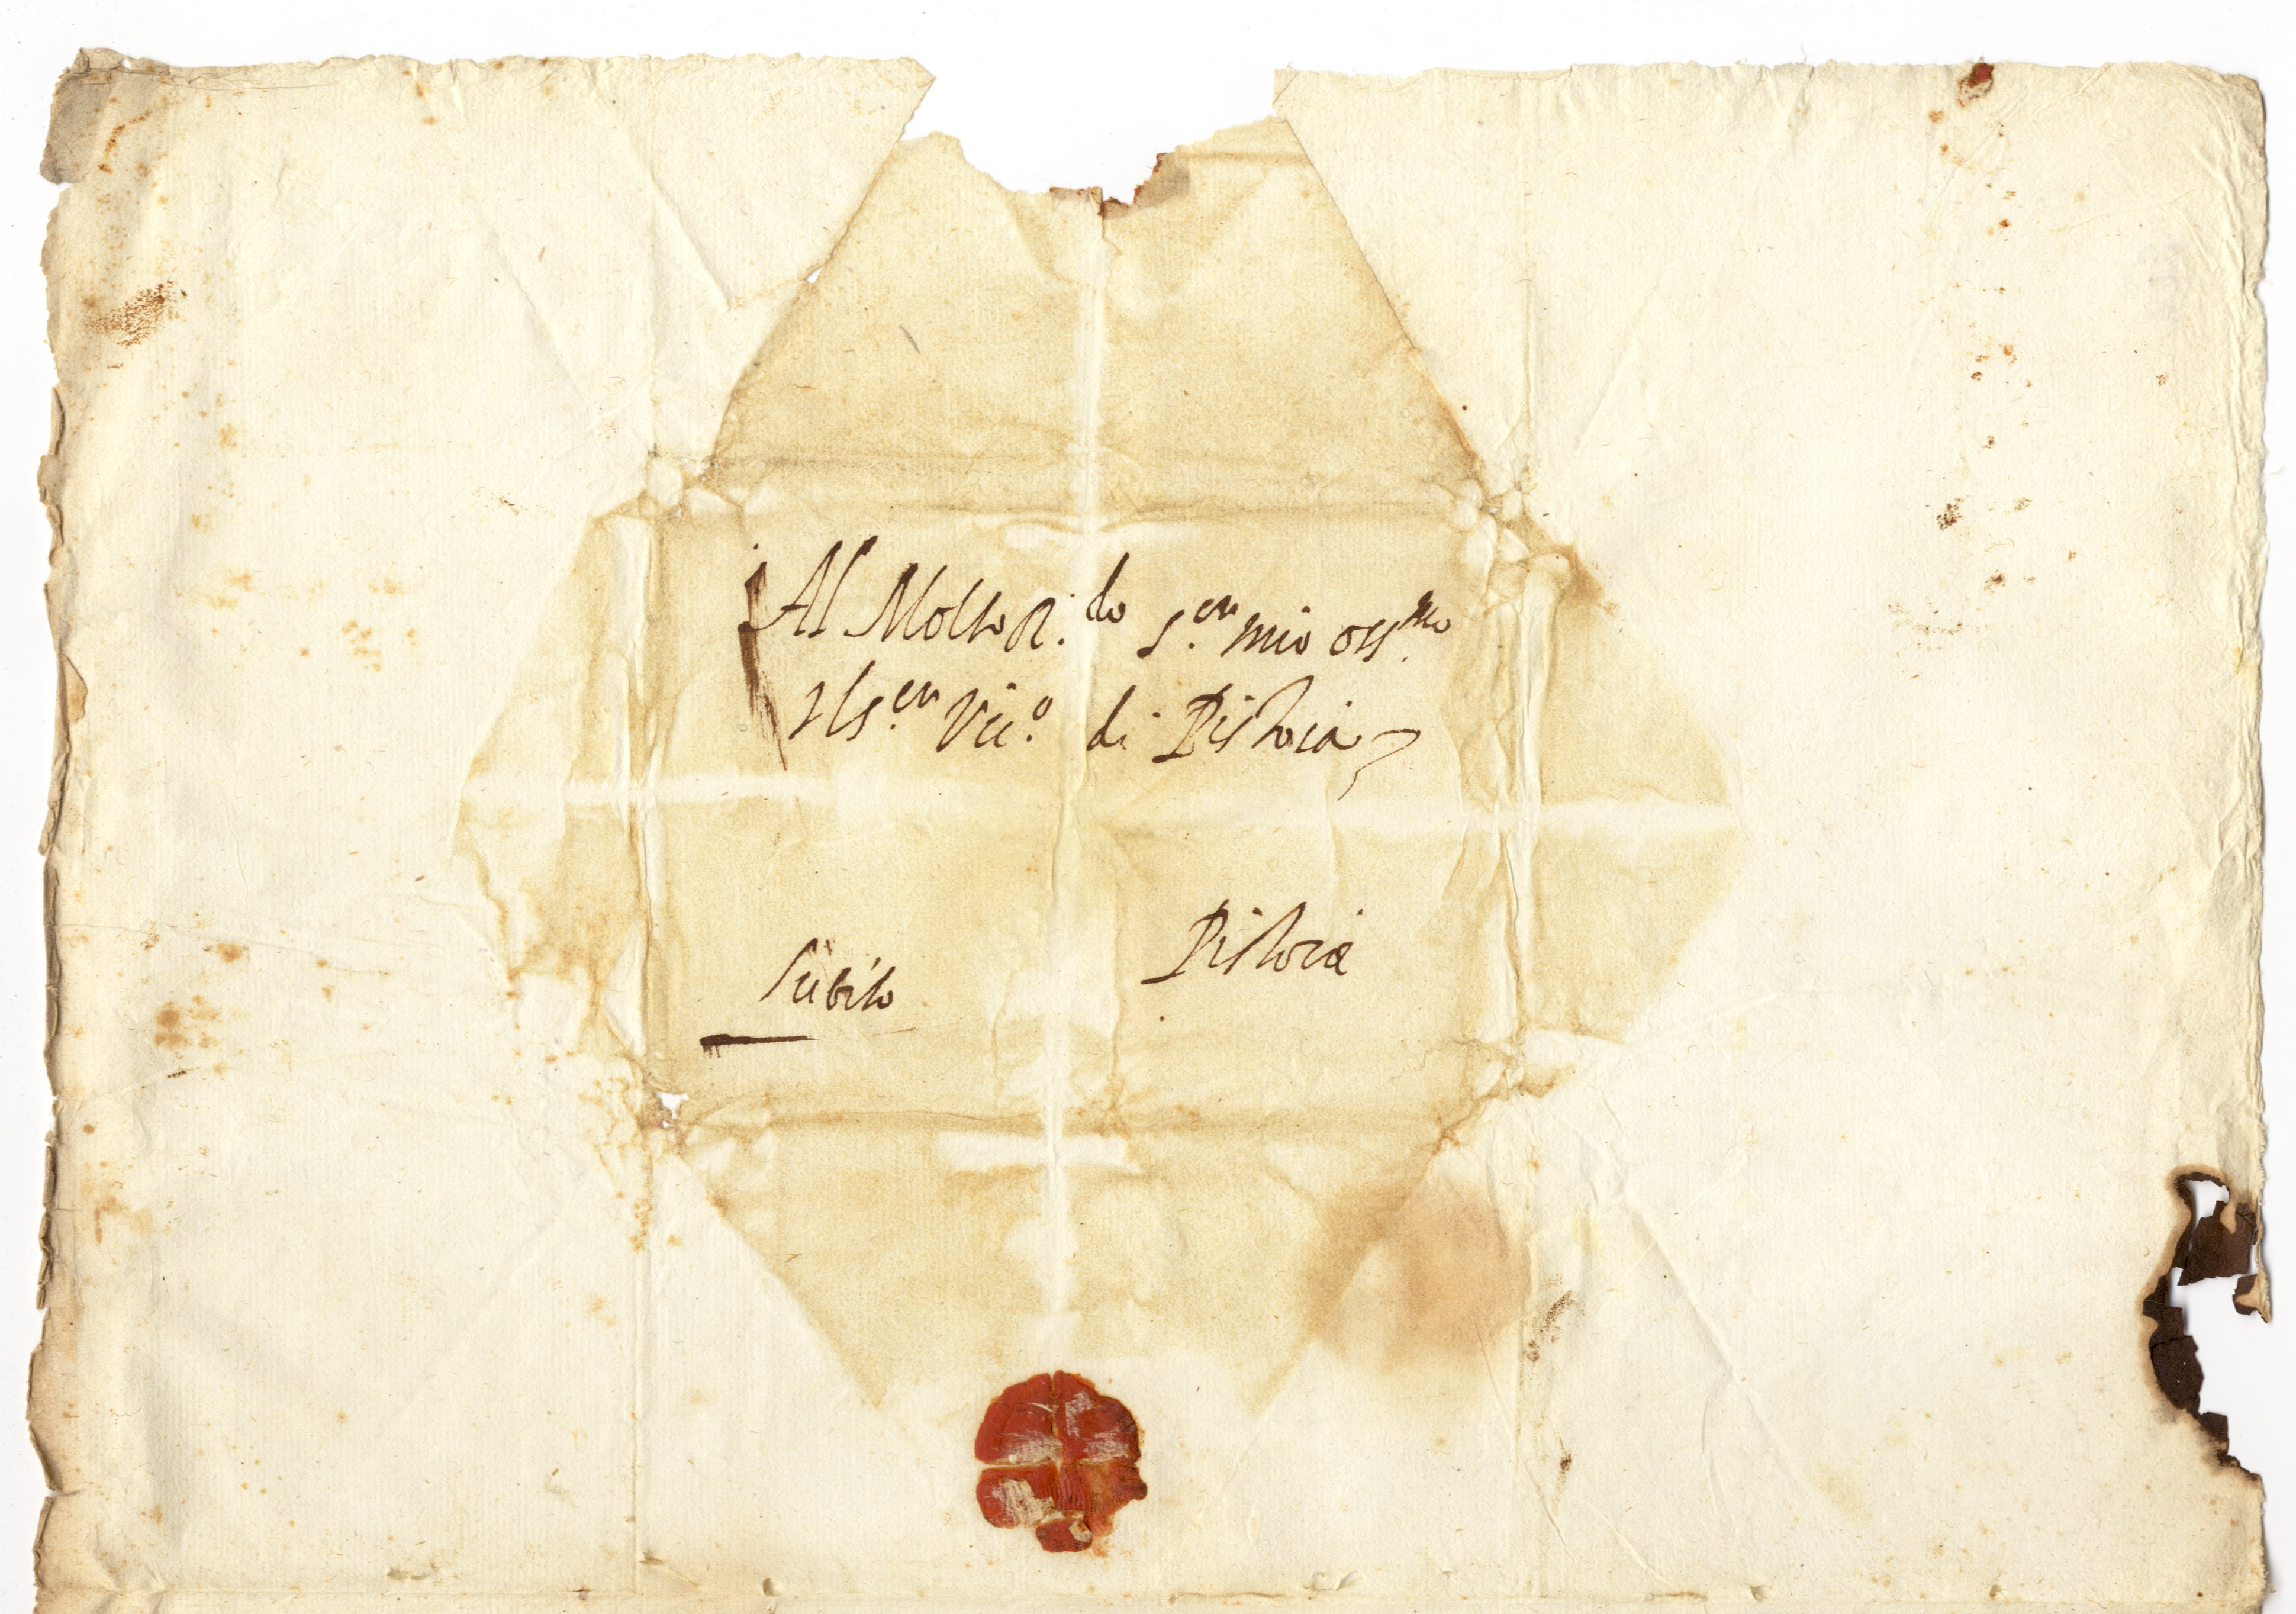 Al Molto R.do S.er mio oss.mo
Il s.er Vic.o di Pistoia
Pistoia
Subito